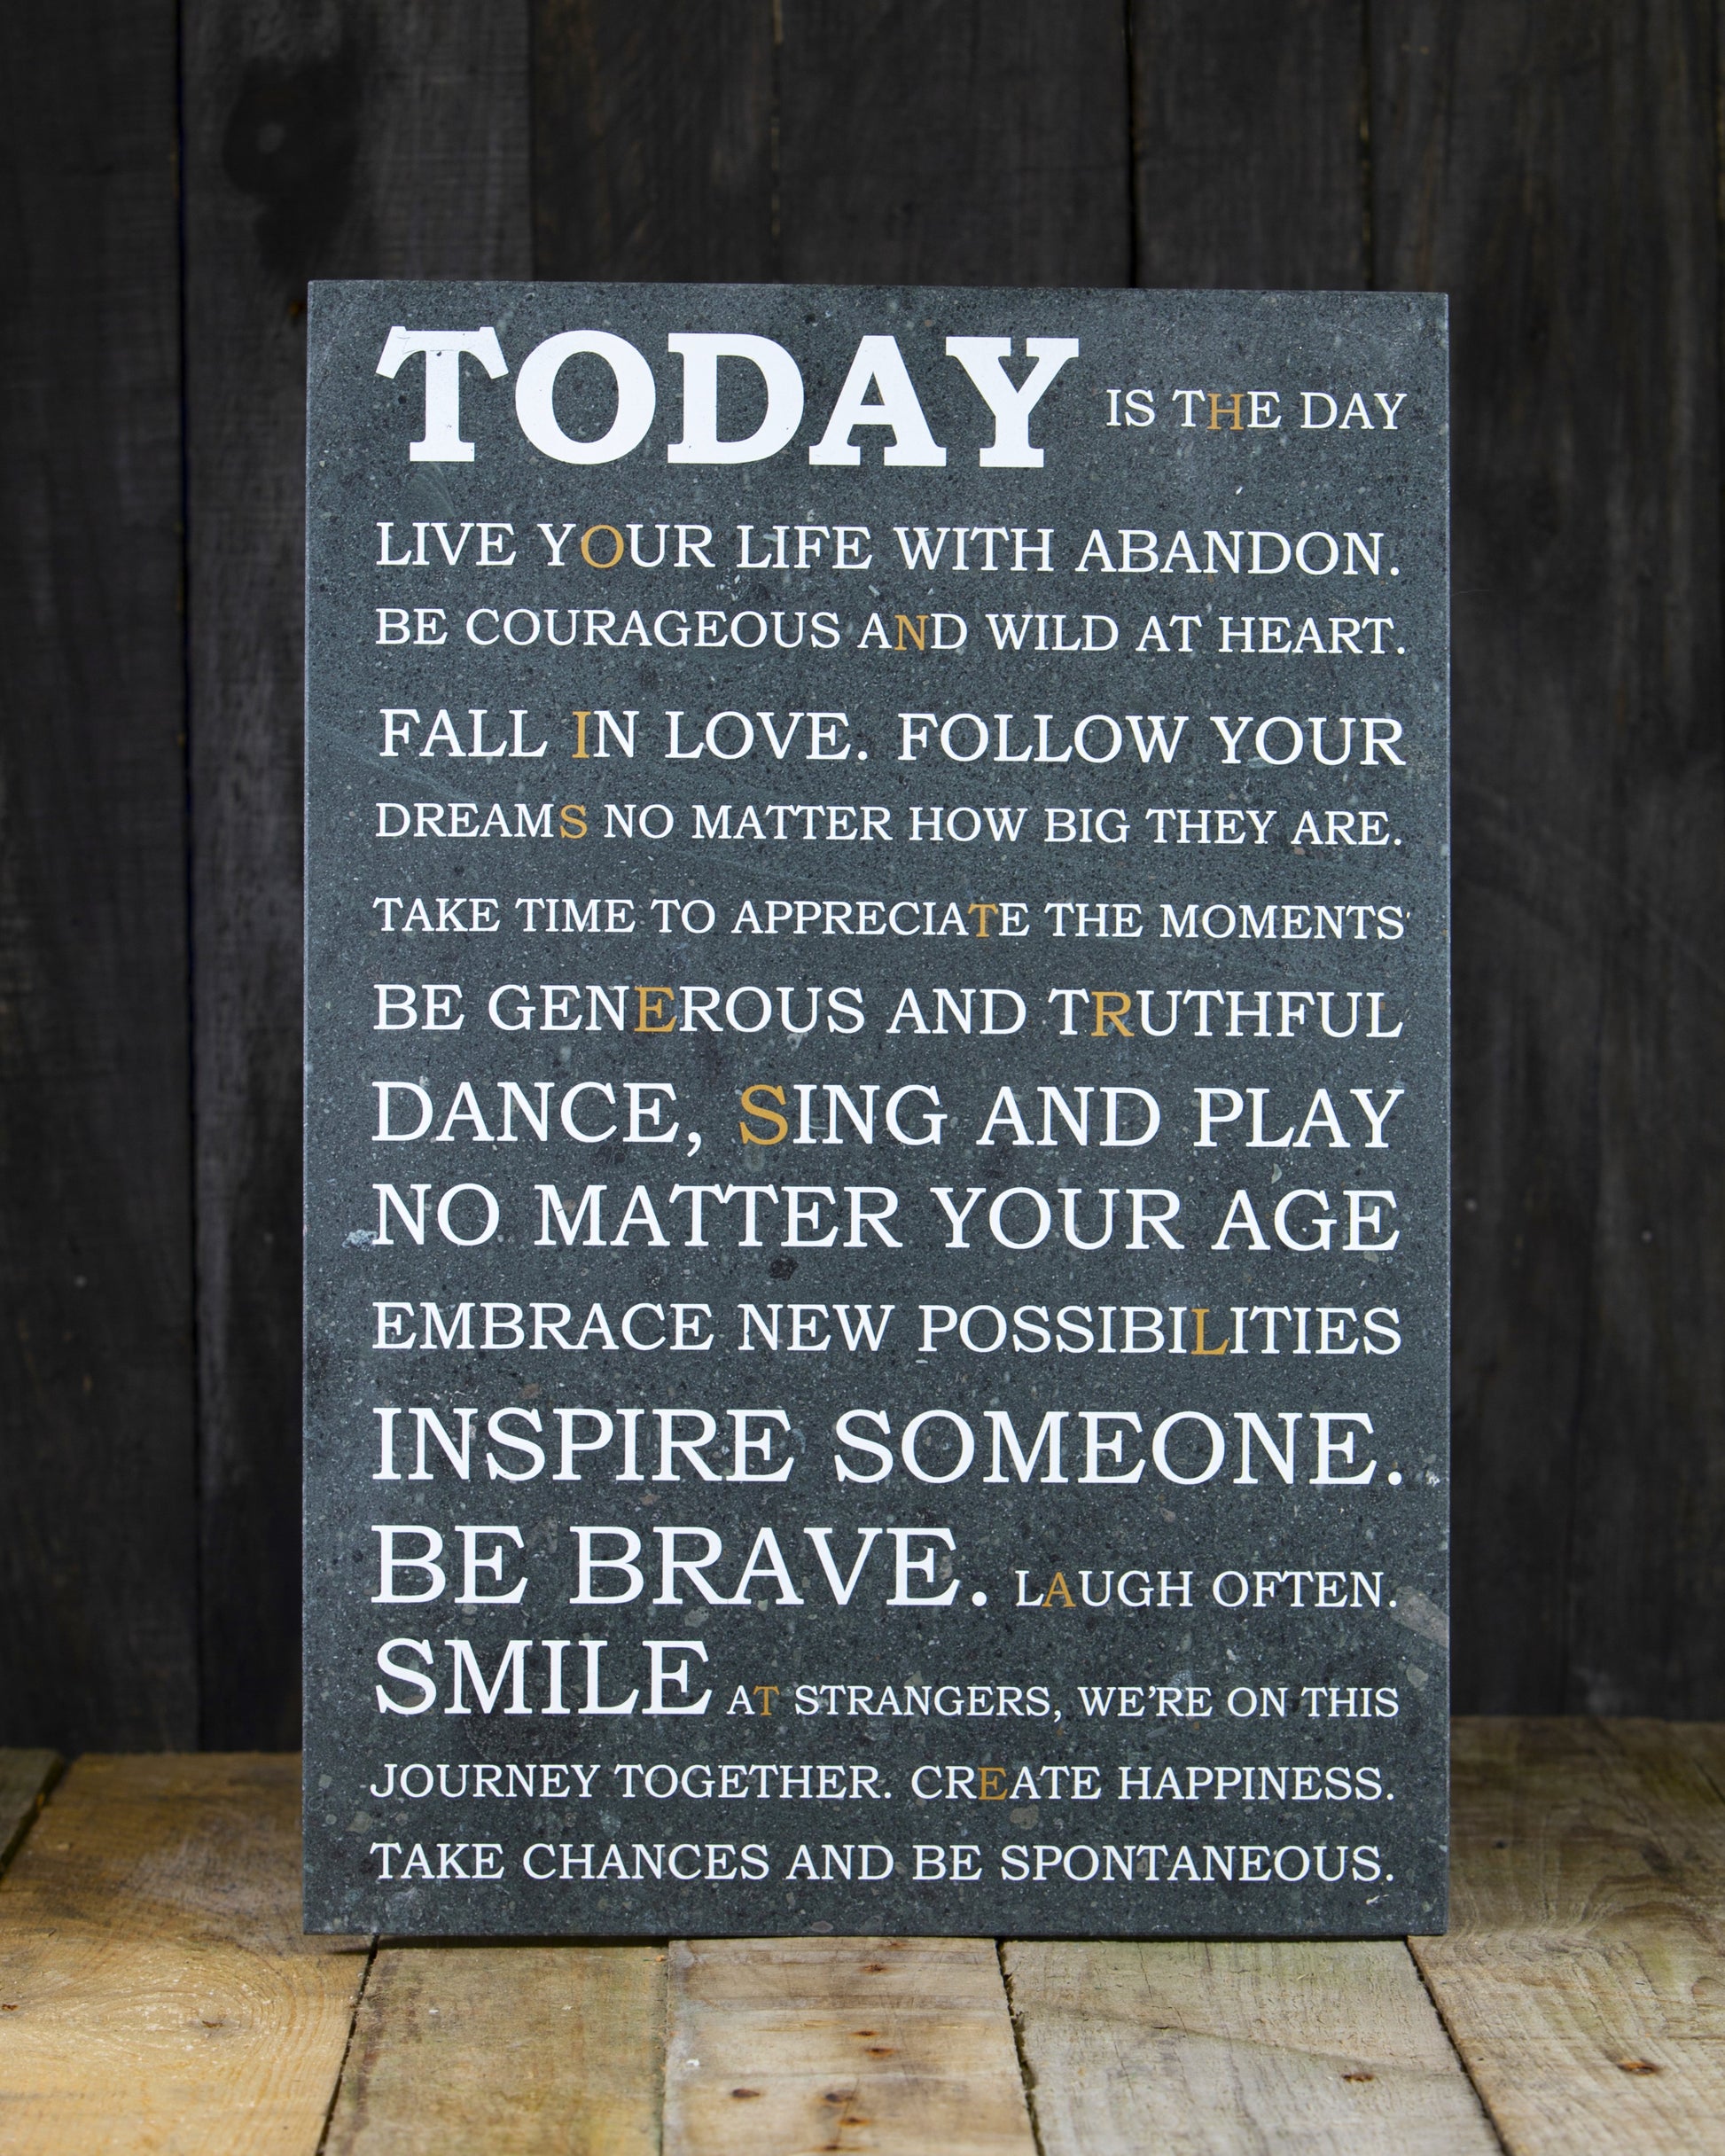 TODAY IS THE DAY
LIVE YOUR LIFE WITH ABANDON.
BE COURAGEOUS AND WILD AT HEART.
FALL IN LOVE. FOLLOW YOUR
DREAMS NO MATTER HOW BIG THEY ARE.
TAKE TIME TO APPRECIATE THE MOMENTS
BE GENEROUS AND TRUTHFUL
DANCE, SING AND PLAY
NO MATTER YOUR AGE
EMBRACE NEW POSSIBILITIES
INSPIRE SOMEONE.
BE BRAVE. LAUGH OFTEN.
SMILE AT STRANGERS, WE'RE ON THIS
JOURNEY TOGETHER. CREATE HAPPINESS.
TAKE CHANCES AND BE SPONTANEOUS.